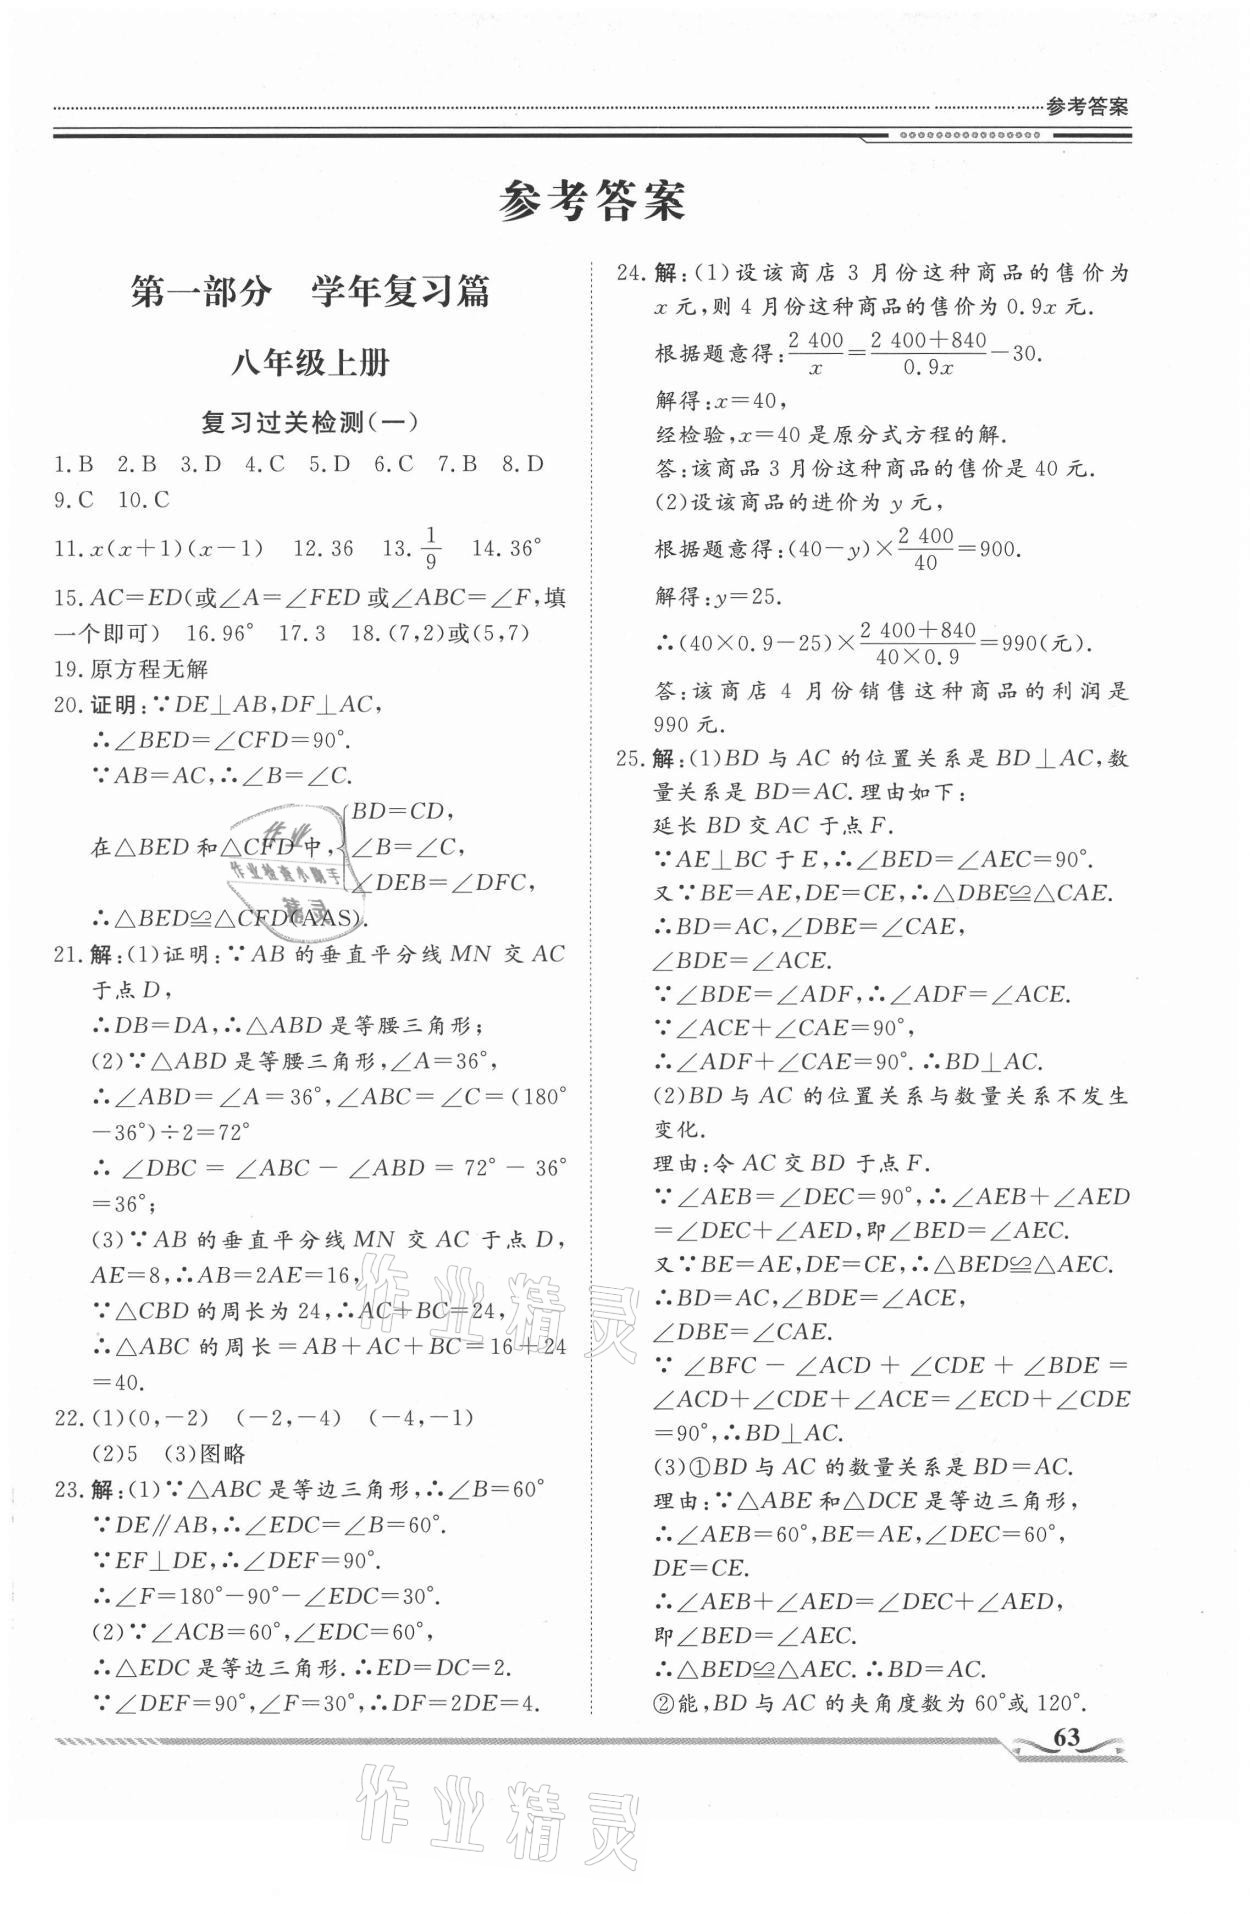 参考答案
参考答案
第一部分　学年复习篇
八年级上册
复习过关检测(一)
1.B 2.B 3.D 4.C 5.D 6.C 7.B 8.D
9.C 10.C
11.x(x+1)(x-1) 12.36 13.1/9 14.36°
15.AC=ED(或∠A=∠FED或∠ABC=∠F,填
一个即可) 16.96° 17.3 18.(7,2)或(5,7)
19.原方程无解
20.证明:∵DE⊥AB,DF⊥AC,
∴∠BED=∠CFD=90°.
∵AB=AC,∴∠B=∠C.
在△BED和△CFD中,{BD=CD,
∠B=∠C,
∠DEB=∠DFC,
∴△BED≌△CFD(AAS).
21.解:(1)证明:∵AB的垂直平分线MN交AC
于点D,
∴DB=DA,∴△ABD是等腰三角形;
(2)∵△ABD是等腰三角形,∠A=36°,
∴∠ABD=∠A=36°,∠ABC=∠C=(180°
-36°)÷2=72°
∴∠DBC=∠ABC-∠ABD=72°-36°
=36°;
(3)∵AB的垂直平分线MN交AC于点D,
AE=8,∴AB=2AE=16,
∵△CBD的周长为24,∴AC+BC=24,
∴△ABC的周长=AB+AC+BC=16+24
=40.
22.(1)(0,-2) (-2,-4) (-4,-1)
(2)5 (3)图略
23.解:(1)∵△ABC是等边三角形,∴∠B=60°
∵DE∥AB,∴∠EDC=∠B=60°.
∵EF⊥DE,∴∠DEF=90°.
∴∠F=180°-90°-∠EDC=30°.
(2)∵∠ACB=60°,∠EDC=60°,
∴△EDC是等边三角形.∴ED=DC=2.
∵∠DEF=90°,∠F=30°,∴DF=2DE=4.
24.解:(1)设该商店3月份这种商品的售价为
x元,则4月份这种商品的售价为0.9x元.
根据题意得:2 400/x=(2 400+840)/0.9x-30.
解得:x=40,
经检验,x=40是原分式方程的解.
答:该商品3月份这种商品的售价是40元.
(2)设该商品的进价为y元,
根据题意得:(40-y)×2 400/40=900.
解得:y=25.
∴(40×0.9-25)×(2 400+840)/(40×0.9)=990(元).
答:该商店4月份销售这种商品的利润是
990元.
25.解:(1)BD与AC的位置关系是BD⊥AC,数
量关系是BD=AC.理由如下:
延长BD交AC于点F.
∵AE⊥BC于E,∴∠BED=∠AEC=90°.
又∵BE=AE,DE=CE,∴△DBE≌△CAE.
∴BD=AC,∠DBE=∠CAE,
∠BDE=∠ACE.
∵∠BDE=∠ADF,∴∠ADF=∠ACE.
∵∠ACE+∠CAE=90°,
∴∠ADF+∠CAE=90°.∴BD⊥AC.
(2)BD与AC的位置关系与数量关系不发生
变化.
理由:令AC交BD于点F.
∵∠AEB=∠DEC=90°,∴∠AEB+∠AED
=∠DEC+∠AED,即∠BED=∠AEC.
又∵BE=AE,DE=CE,∴△BED≌△AEC.
∴BD=AC,∠BDE=∠ACE,
∠DBE=∠CAE.
∵∠BFC-∠ACD+∠CDE+∠BDE=
∠ACD+∠CDE+∠ACE=∠ECD+∠CDE
=90°,∴BD⊥AC.
(3)①BD与AC的数量关系是BD=AC.
理由:∵△ABE和△DCE是等边三角形,
∴∠AEB=60°,BE=AE,∠DEC=60°,
DE=CE.
∴∠AEB+∠AED=∠DEC+∠AED,
即∠BED=∠AEC.
∴△BED≌△AEC.∴BD=AC.
②能,BD与AC的夹角度数为60°或120°.
63
作业
作业检查小助手
精灵
作业精灵
作业精灵